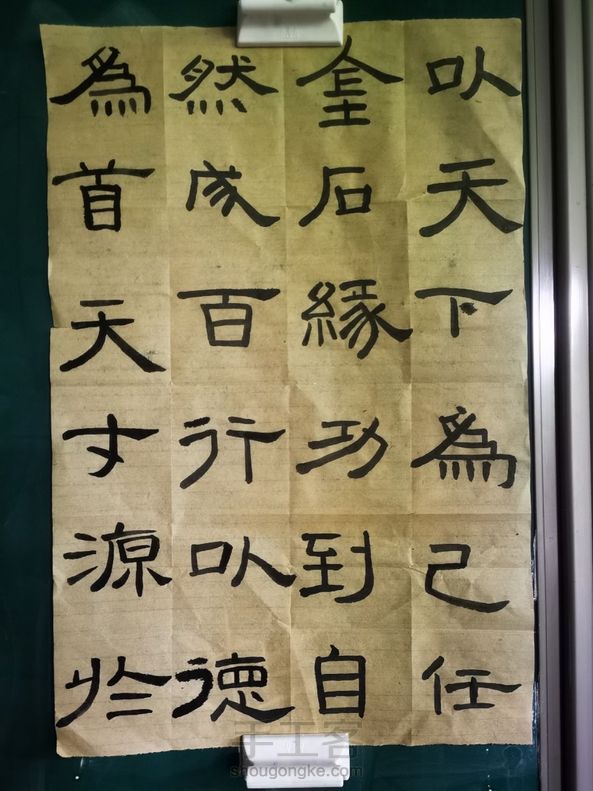 以天下為己任
金石緣功到自
然成百行以德
為首天才源於
手工客
shougongke.com